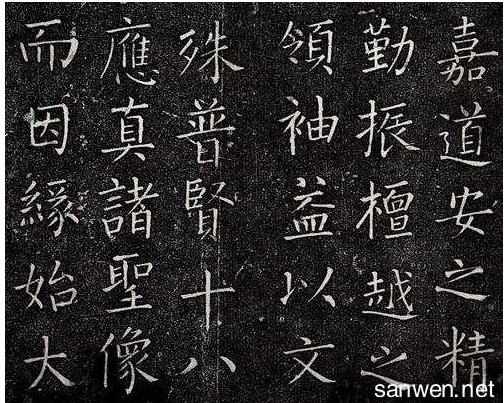 嘉道安之精
勤振檀越之
領袖益以文
殊普賢十八
應真諸聖像
而因緣始大
sanwen.net